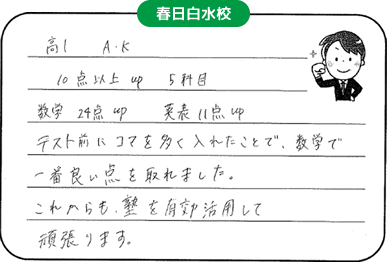 春日白水校
高1 A・K
10点以上up 5科目
数学 24点up 英表11点up
テスト前にコマを多く入れたことで、数学で
一番良い点を取れました。
これからも、塾を有効活用して
頑張ります。